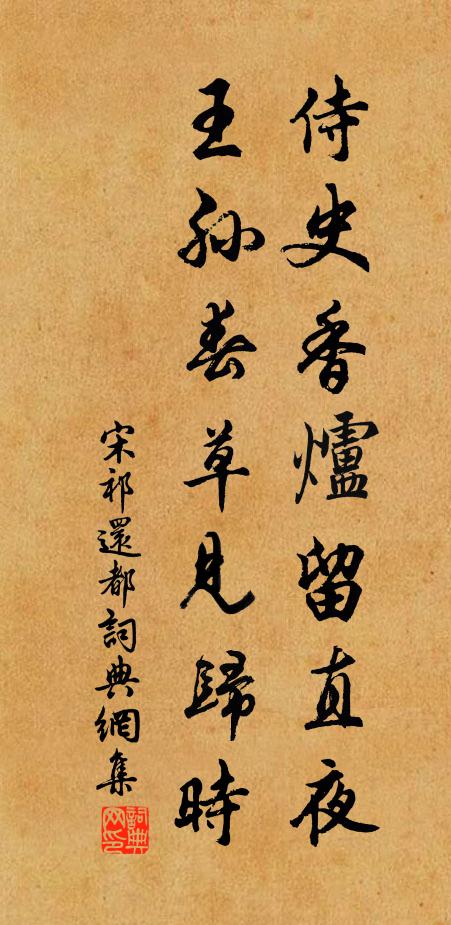 侍史香爐留直夜
王孫春草見歸時
宋祁還都詞典網集
詞典網印